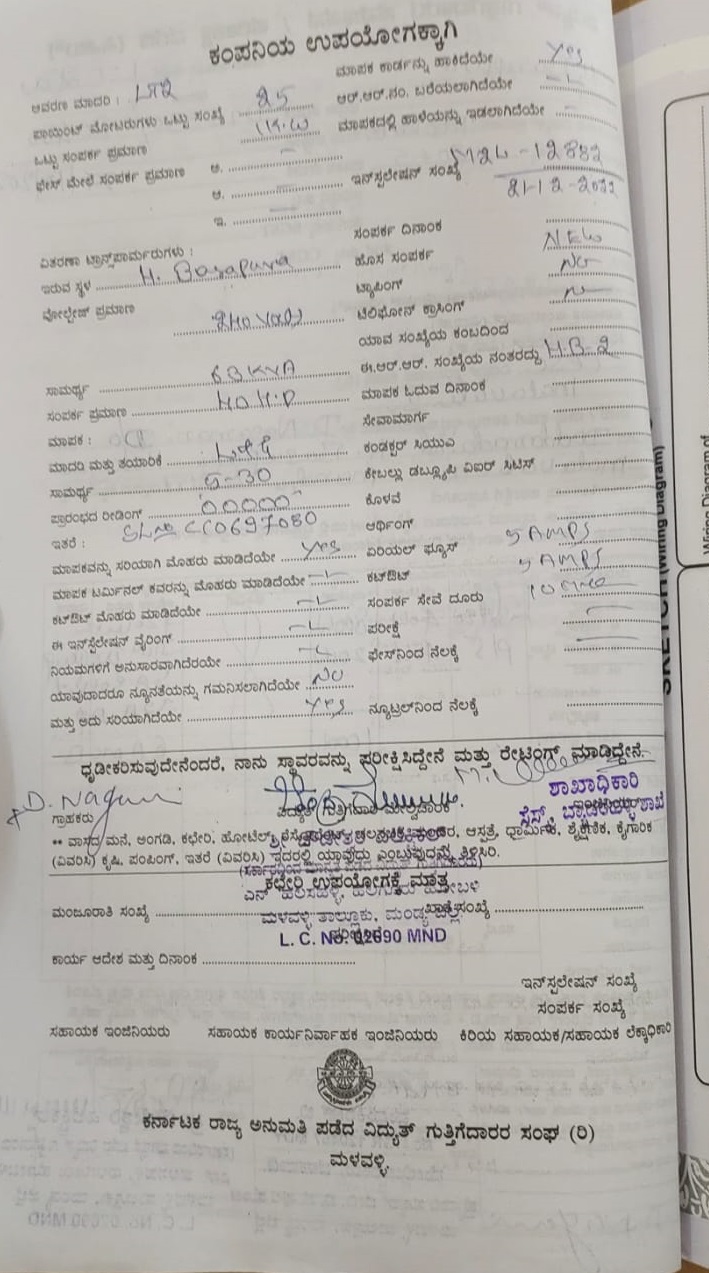 ಕಂಪನಿಯ ಉಪಯೋಗಕ್ಕಾಗಿ
ಆವರಣ ಮಾದರಿ : LT2
ಪಾಯಿಂಟ್ ಮೋಟರುಗಳು ಒಟ್ಟು ಸಂಖ್ಯೆ 25
ಒಟ್ಟು ಸಂಪರ್ಕ ಪ್ರಮಾಣ 1K.W
ಫೇಸ್ ಮೇಲೆ ಸಂಪರ್ಕ ಪ್ರಮಾಣ ಅ.
ಆ.
ಇ.
ವಿತರಣಾ ಟ್ರಾನ್ಸ್‌ಫಾರ್ಮರುಗಳು :
ಇರುವ ಸ್ಥಳ H. Basapura
ವೋಲ್ಟೇಜ್ ಪ್ರಮಾಣ 240 Volts
ಸಾಮರ್ಥ್ಯ 63 KVA
ಸಂಪರ್ಕ ಪ್ರಮಾಣ 40 H.P
ಮಾಪಕ :
ಮಾದರಿ ಮತ್ತು ತಯಾರಿಕೆ L&G
ಸಾಮರ್ಥ್ಯ 5-30
ಪ್ರಾರಂಭದ ರೀಡಿಂಗ್ 00000
ಇತರೆ : SL no CC0697080
ಮಾಪಕವನ್ನು ಸರಿಯಾಗಿ ಮೊಹರು ಮಾಡಿದೆಯೇ Yes
ಮಾಪಕ ಟರ್ಮಿನಲ್ ಕವರನ್ನು ಮೊಹರು ಮಾಡಿದೆಯೇ
ಕಟ್‌ಔಟ್ ಮೊಹರು ಮಾಡಿದೆಯೇ
ಈ ಇನ್‌ಸ್ಟಲೇಷನ್ ವೈರಿಂಗ್
ನಿಯಮಗಳಿಗೆ ಅನುಸಾರವಾಗಿದೆರಯೇ
ಯಾವುದಾದರೂ ನ್ಯೂನತೆಯನ್ನು ಗಮನಿಸಲಾಗಿದೆಯೇ No
ಮತ್ತು ಅದು ಸರಿಯಾಗಿದೆಯೇ Yes
ಮಾಪಕ ಕಾರ್ಡನ್ನು ಹಾಕಿದೆಯೇ Yes
ಆರ್.ಆರ್.ನಂ. ಬರೆಯಲಾಗಿದೆಯೇ
ಮಾಪಕದಲ್ಲಿ ಹಾಳೆಯನ್ನು ಇಡಲಾಗಿದೆಯೇ
ಇನ್‌ಸ್ಟಲೇಷನ್ ಸಂಖ್ಯೆ M2L-12882
21-12-2022
ಸಂಪರ್ಕ ದಿನಾಂಕ
ಹೊಸ ಸಂಪರ್ಕ NEW
ಟ್ಯಾಪಿಂಗ್ No
ಟೆಲಿಫೋನ್ ಕ್ರಾಸಿಂಗ್
ಯಾವ ಸಂಖ್ಯೆಯ ಕಂಬದಿಂದ
ಈ.ಆರ್.ಆರ್. ಸಂಖ್ಯೆಯ ನಂತರದ್ದು H.B-2
ಮಾಪಕ ಓದುವ ದಿನಾಂಕ
ಸೇವಾಮಾರ್ಗ
ಕಂಡಕ್ಟರ್ ಸಿಯುಎ
ಕೇಬಲ್ಲು ಡಬ್ಲ್ಯೂಪಿ ಏಐರ್ ಸಿಟಿಸ್
ಕೊಳವೆ
ಆರ್ಥಿಂಗ್
ಏರಿಯಲ್ ಫ್ಯೂಸ್ 5 AMPS
ಕಟ್‌ಔಟ್ 5 AMPS
ಸಂಪರ್ಕ ಸೇವೆ ದೂರು
ಪರೀಕ್ಷೆ
ಫೇಸ್‌ನಿಂದ ನೆಲಕ್ಕೆ
ನ್ಯೂಟ್ರಲ್‌ನಿಂದ ನೆಲಕ್ಕೆ
ಧೃಡೀಕರಿಸುವುದೇನೆಂದರೆ, ನಾನು ಸ್ಥಾವರವನ್ನು ಪರೀಕ್ಷಿಸಿದ್ದೇನೆ ಮತ್ತು ರೇಟಿಂಗ್ ಮಾಡಿದ್ದೇನೆ.
D. Nagam
ಗ್ರಾಹಕರು
ಶಾಖಾಧಿಕಾರಿ
** ವಾಸದ ಮನೆ, ಅಂಗಡಿ, ಕಛೇರಿ, ಹೋಟೆಲ್, ಆಸ್ಪತ್ರೆ, ಧಾರ್ಮಿಕ, ಶೈಕ್ಷಣಿಕ, ಕೈಗಾರಿಕ
(ವಿವರಿಸಿ) ಕೃಷಿ, ಪಂಪಿಂಗ್, ಇತರೆ (ವಿವರಿಸಿ) ಇದರಲ್ಲಿ ಯಾವುದು ಎಂಬುವುದನ್ನು ತಿಳಿಸಿರಿ.
ಕಛೇರಿ ಉಪಯೋಗಕ್ಕೆ ಮಾತ್ರ
ಮಂಜೂರಾತಿ ಸಂಖ್ಯೆ
ಮಳವಳ್ಳಿ ತಾಲ್ಲೂಕು, ಮಂಡ್ಯ ಜಿಲ್ಲೆ
L. C. No. 02690 MND
ಕಾರ್ಯ ಆದೇಶ ಮತ್ತು ದಿನಾಂಕ
ಇನ್‌ಸ್ಟಲೇಷನ್ ಸಂಖ್ಯೆ
ಸಂಪರ್ಕ ಸಂಖ್ಯೆ
ಸಹಾಯಕ ಇಂಜಿನಿಯರು ಸಹಾಯಕ ಕಾರ್ಯನಿರ್ವಾಹಕ ಇಂಜಿನಿಯರು ಕಿರಿಯ ಸಹಾಯಕ/ಸಹಾಯಕ ಲೆಕ್ಕಾಧಿಕಾರಿ
ಕರ್ನಾಟಕ ರಾಜ್ಯ ಅನುಮತಿ ಪಡೆದ ವಿದ್ಯುತ್ ಗುತ್ತಿಗೆದಾರರ ಸಂಘ (ರಿ)
ಮಳವಳ್ಳಿ.
SKETCH (Wiring Diagram)
Wiring Diagram of